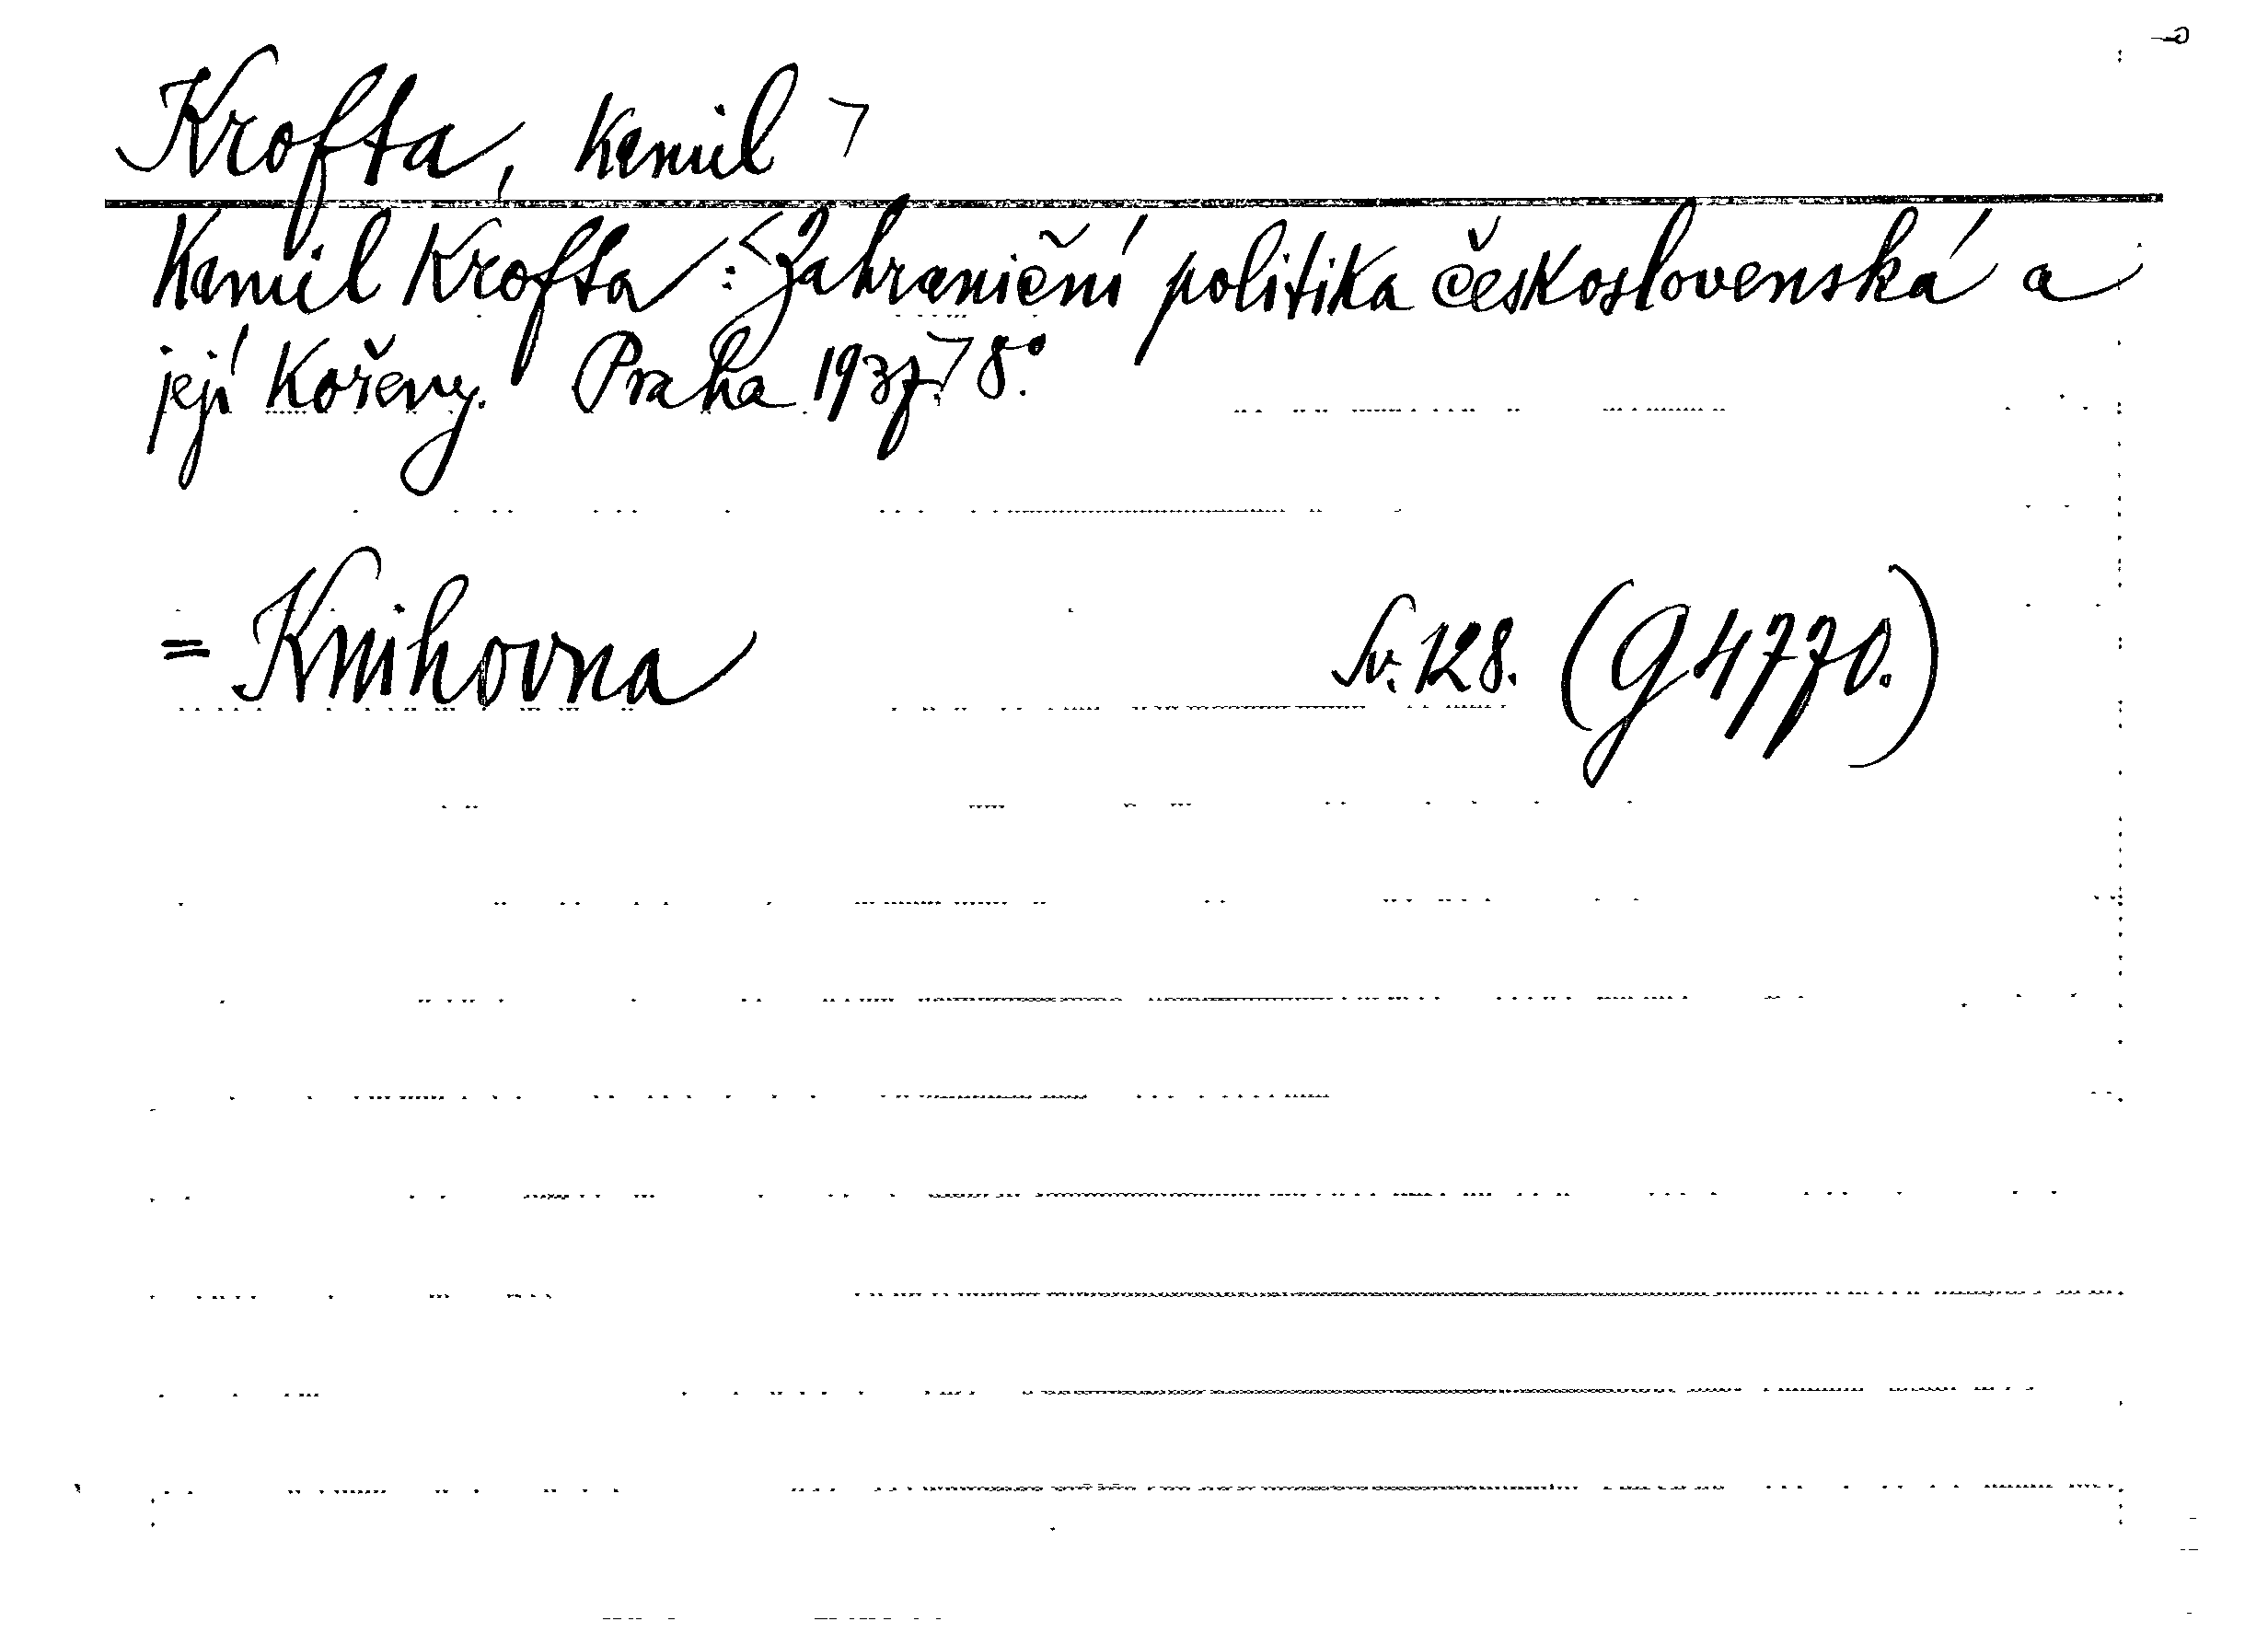 Krofta, Kamil ˥
Kamil Krofta : <Zahraniční politika československá a
její Kořeny. Praha 1937.˥ 8°.
= Knihovna Sv. 128. (G 4770.)